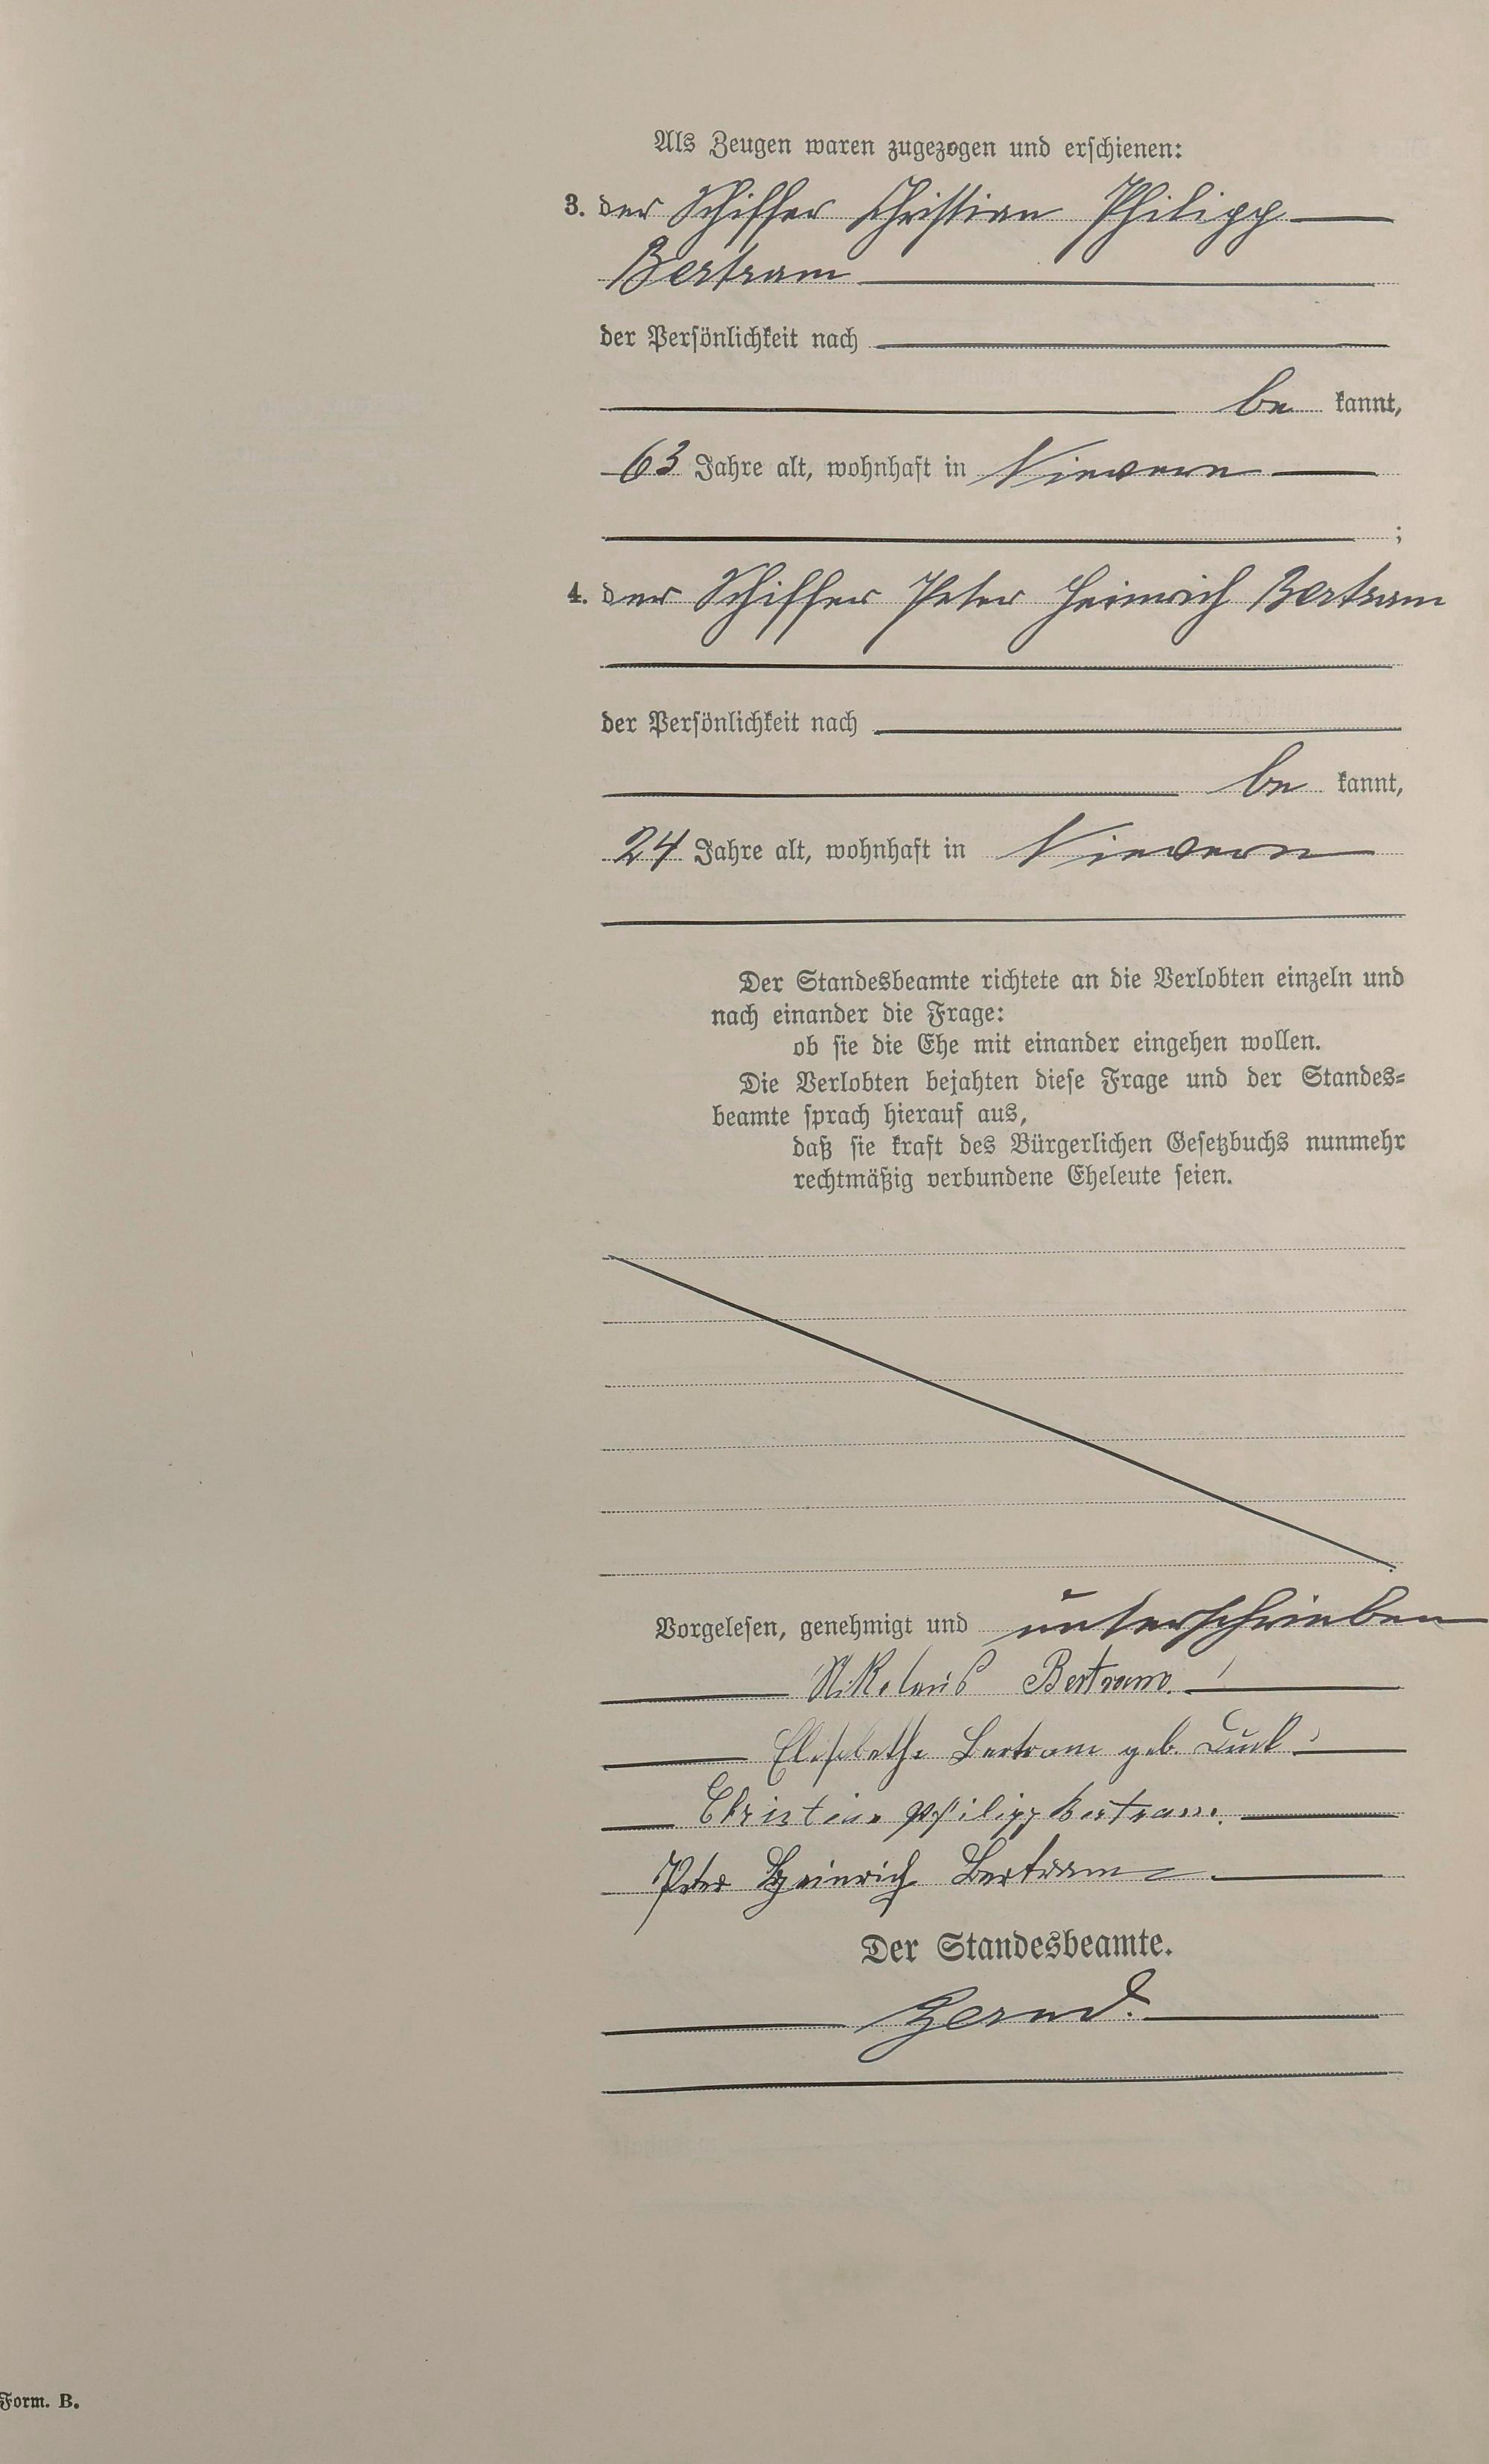 Als Zeugen waren zugezogen und erschienen:
3. der Schiffer Christian Philipp
Bertram
der Persönlichkeit nach
be kannt,
63 Jahre alt, wohnhaft in Nievern
;
4. der Schiffer Peter Heinrich Bertram
der Persönlichkeit nach
be kannt,
24 Jahre alt, wohnhaft in Nievern
Der Standesbeamte richtete an die Verlobten einzeln und
nach einander die Frage:
ob sie die Ehe mit einander eingehen wollen.
Die Verlobten bejahten diese Frage und der Standes=
beamte sprach hierauf aus,
daß sie kraft des Bürgerlichen Gesetzbuchs nunmehr
rechtmäßig verbundene Eheleute seien.
Vorgelesen, genehmigt und unterschrieben
Nikolaus Bertram.
Elisabetha Bertram geb.
Christian Philipp Bertram.
Peter Heinrich Bertram
Der Standesbeamte.
Form. B.